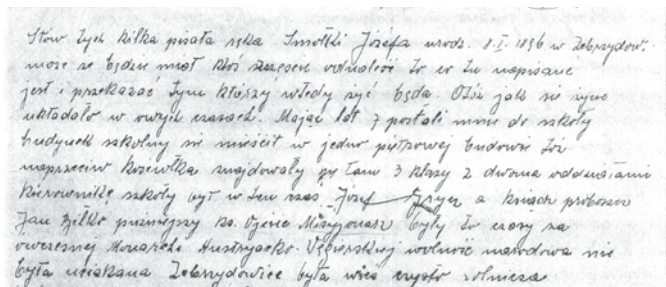 Słów tych kilka pisała ręka Smołki Józefa urodz. 8.I.1896 w Zebrzydow.
może se będzie miał ktoś szczęscie odnaleść to co tu napisane
jest i przekazać tym ktorzy wtedy żyć będą. Otóż jak sie życie
układało w owych czasach. Mając lat 7 posłali mnie do szkoły
budynek szkolny sie mieścił w jedno piętrowej budowie tóż
naprzeciw kościołka znajdowały sie tam 3 klasy z dwoma oddziałami
kierownikiem szkoły był w ten czas Józef a ksiądz proboszcz
Jan puzniejszy ks. Ojciec Misyjonarz były to czasy za
owczesnej Monarchi Austryjacko. Węgierskiej wolność narodowa nie
była uciskana Zebrzydowice była wieś czysto rolnicza